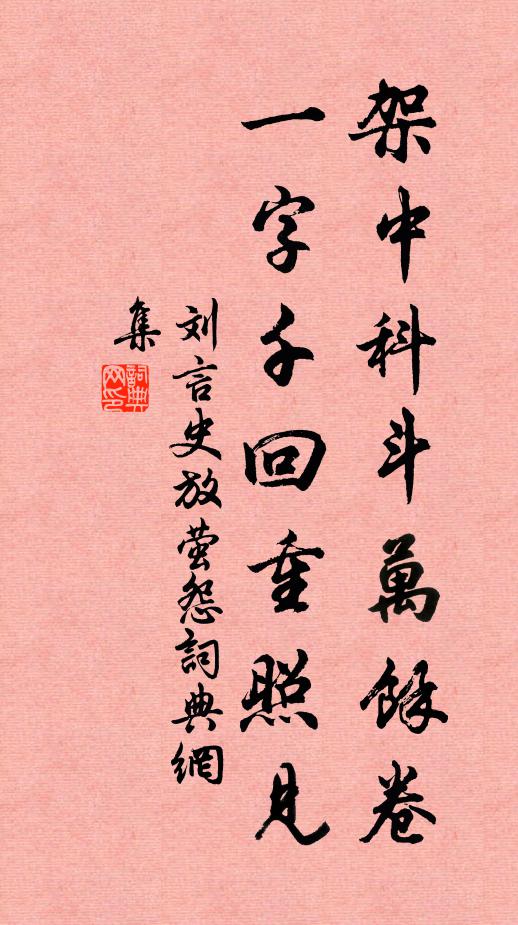 架中科斗萬餘卷
一字千回重照見
刘言史放萤怨詞典網
集
詞典網印